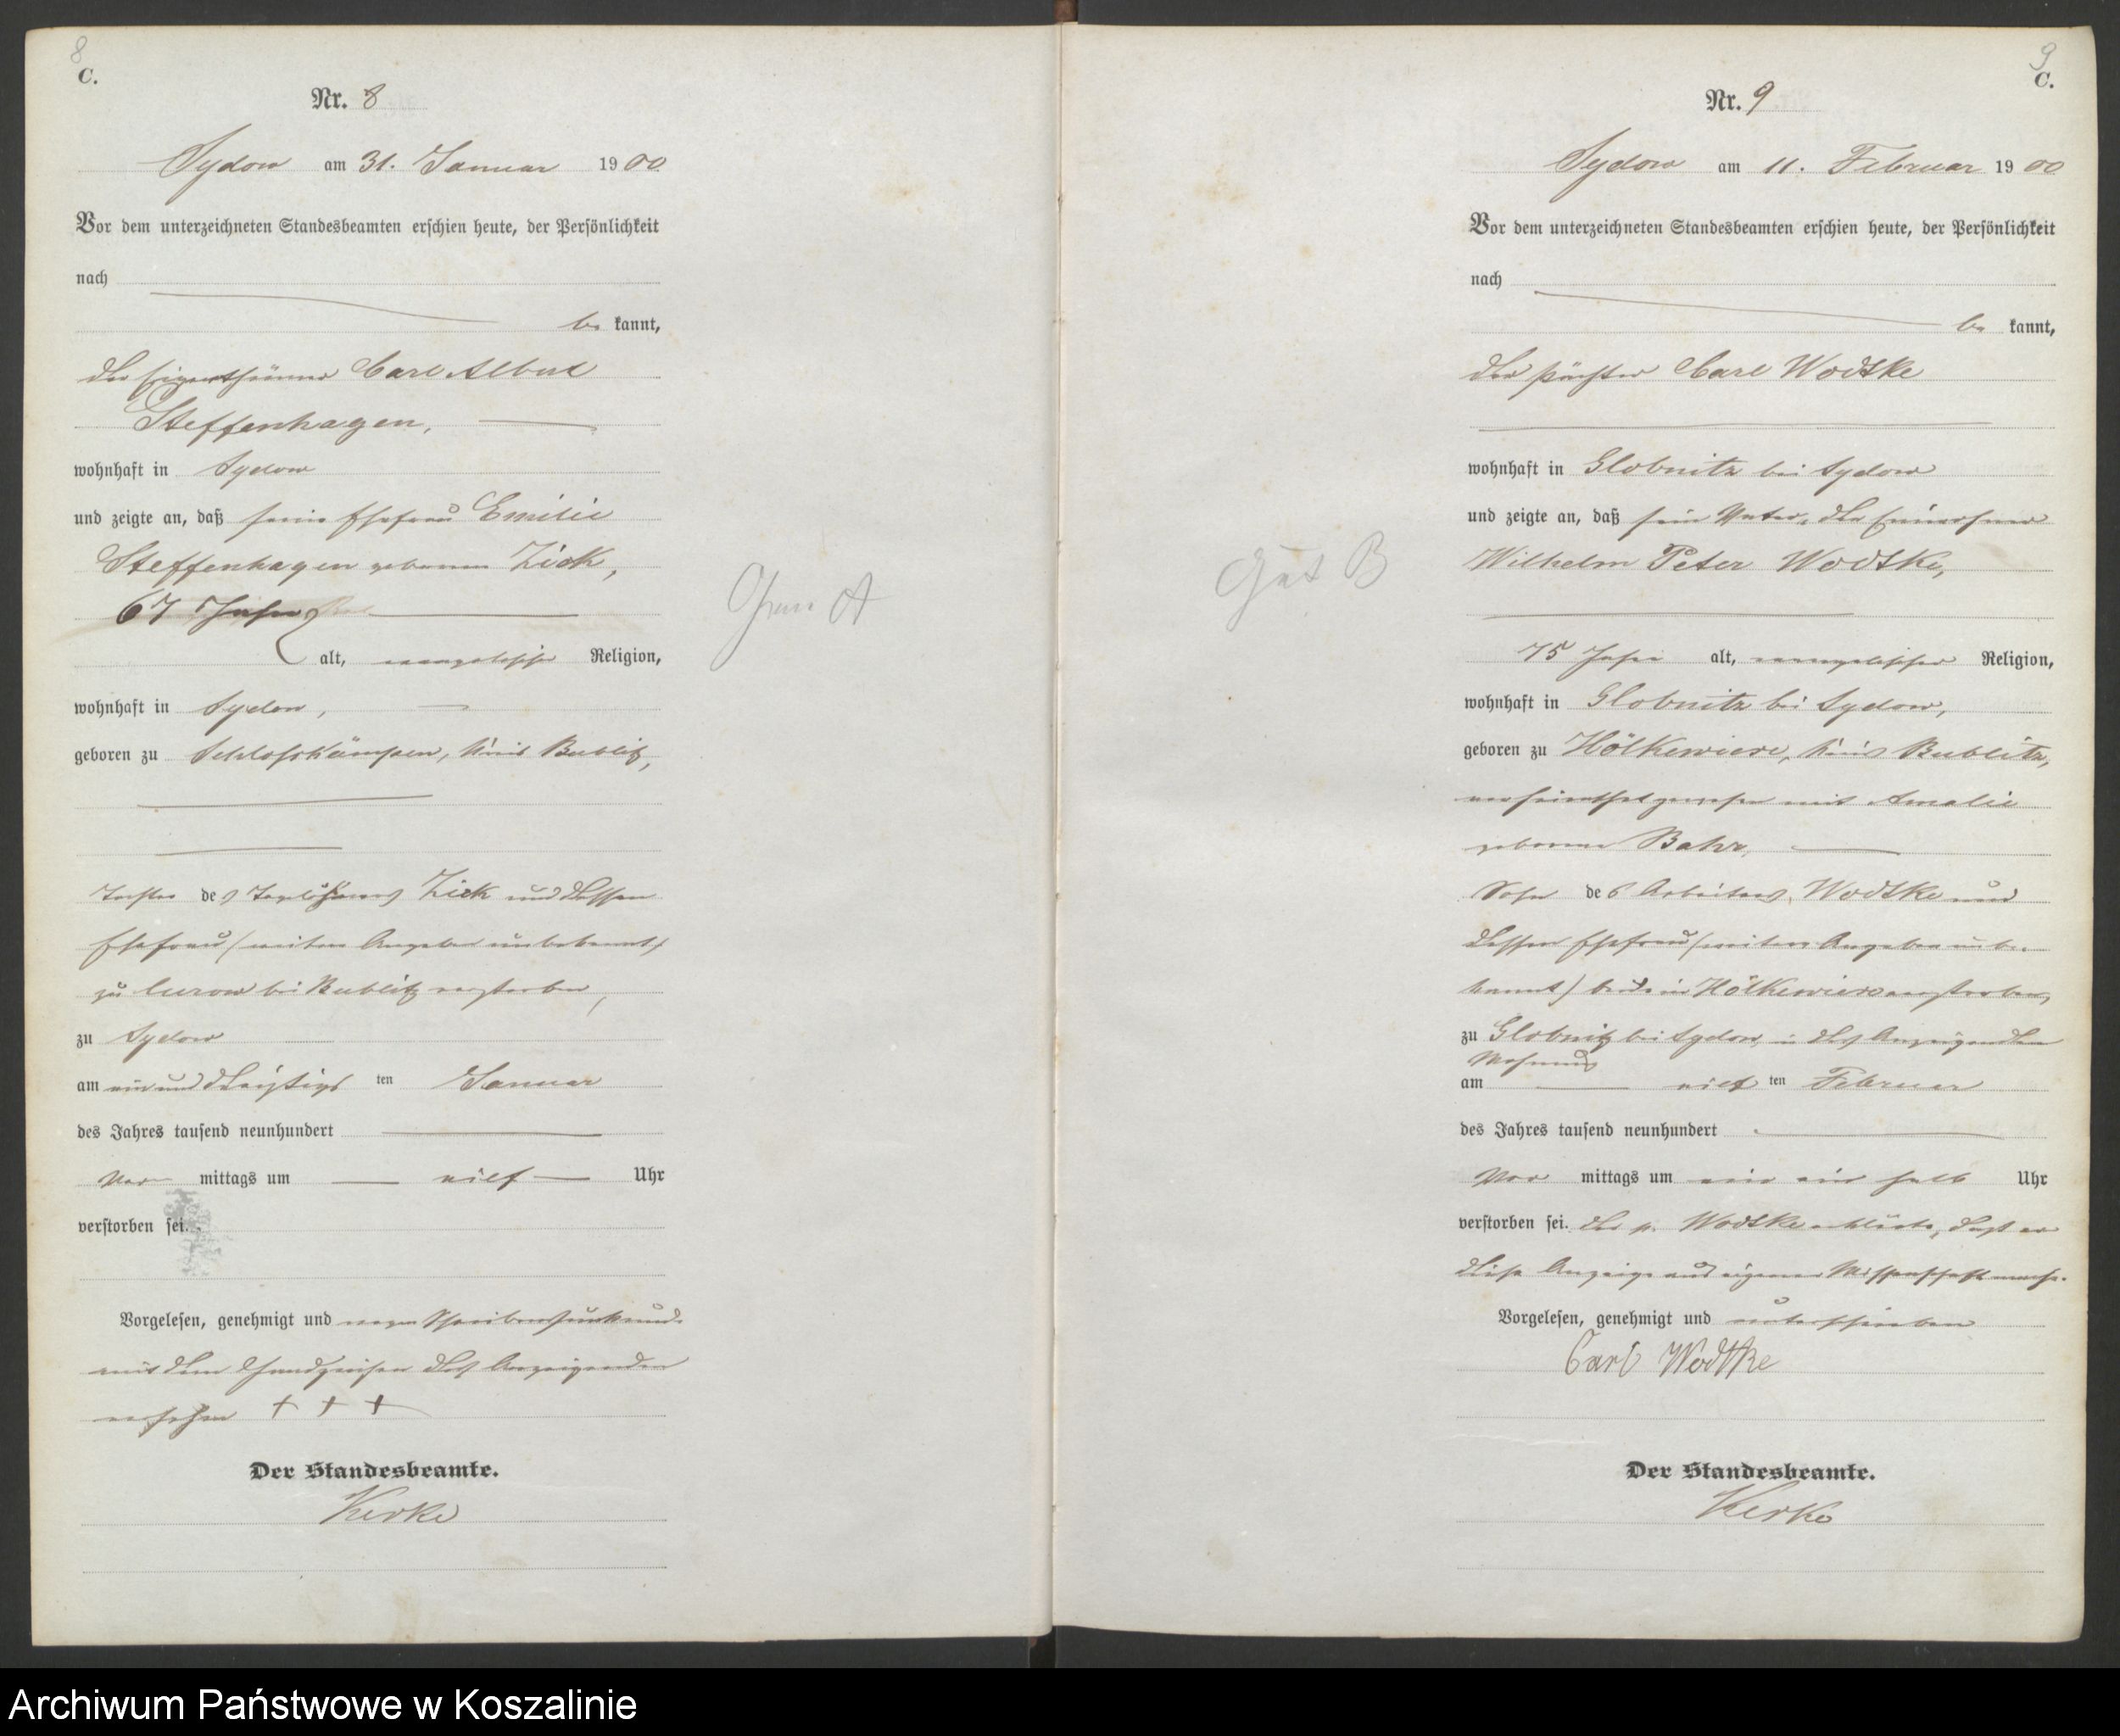 8
C.
Nr. 8
Sydow am 31. Januar 1900
Vor dem unterzeichneten Standesbeamten erschien heute, der Persönlichkeit
nach
be kannt,
der Eigenthümer Carl Albert
Steffenhagen,
wohnhaft in Sydow
und zeigte an, daß seine Ehefrau Emilie
Steffenhagen geborene Zick,
67 Jahre
alt, evangelischer Religion,
wohnhaft in Sydow,
geboren zu Schlosskämpen, Kreis Bublitz,
Tochter des Tagelöhners Zick und dessen
Ehefrau (weitere Angaben unbekannt)
zu Curow bei Bublitz verstorben,
zu Sydow
am ein und dreißigsten Januar
des Jahres tausend neunhundert
Vor mittags um elf Uhr
verstorben sei.
Vorgelesen, genehmigt und wegen Schreibensunkunde
mit dem Handzeichen des Anzeigenden
versehen + + +
Der Standesbeamte.
Kerke
Gem A
9
C.
Nr. 9
Sydow am 11. Februar 1900
Vor dem unterzeichneten Standesbeamten erschien heute, der Persönlichkeit
nach
be kannt,
der Pächter Carl Wodtke
wohnhaft in Globnitz bei Sydow
und zeigte an, daß sein Vater, der Einwohner
Wilhelm Peter Wodtke,
75 Jahre alt, evangelischer Religion,
wohnhaft in Globnitz bei Sydow,
geboren zu Hölkewiese, Kreis Bublitz,
verheirathet gewesen mit Amalie
geborene Bahr,
Sohn des Arbeiters Wodtke und
dessen Ehefrau (weitere Angaben unbe-
kannt) beide in Hölkewiese verstorben,
zu Globnitz bei Sydow, in des Anzeigenden
Wohnung
am elften Februar
des Jahres tausend neunhundert
Vor mittags um ein ein halb Uhr
verstorben sei. Der p. Wodtke erklärte, daß er
diese Anzeige aus eigener Wissenschaft mache.
Vorgelesen, genehmigt und unterschrieben
Carl Wodtke
Der Standesbeamte.
Kerke
Gut B
Archiwum Państwowe w Koszalinie